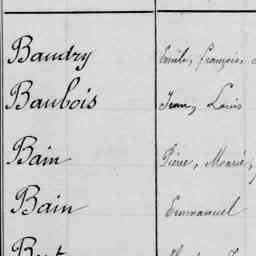 Baudry Emile, François,
Baubois Jean, Louis
Bain Pierre, Marie,
Bain Emmanuel